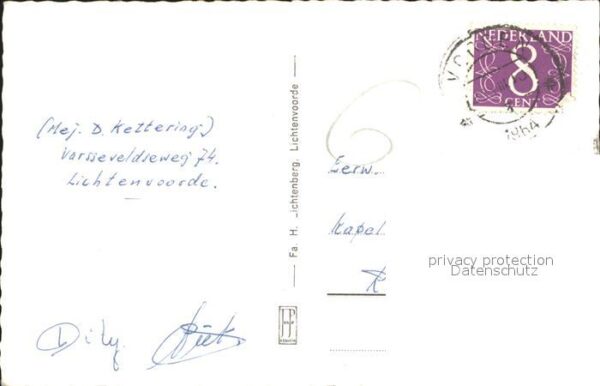 (Mej. D. Kettering.)
Varsseveldseweg 74.
Lichtenvoorde.
Dily
Fa. H. Lichtenberg, Lichtenvoorde
6
NEDERLAND
8
CENT
1964
Eerw.
Kapel
privacy protection
Datenschutz